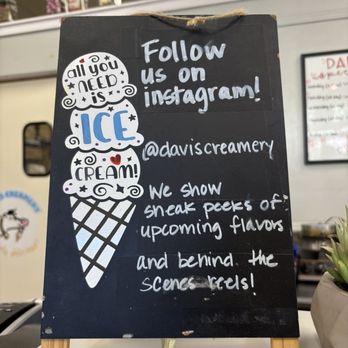 all you
NEED
is
ICE
CREAM!
Follow
us on
instagram!
@daviscreamery
We show
sneak peeks of
upcoming flavors
and behind the
scenes reels!
CREAMERY